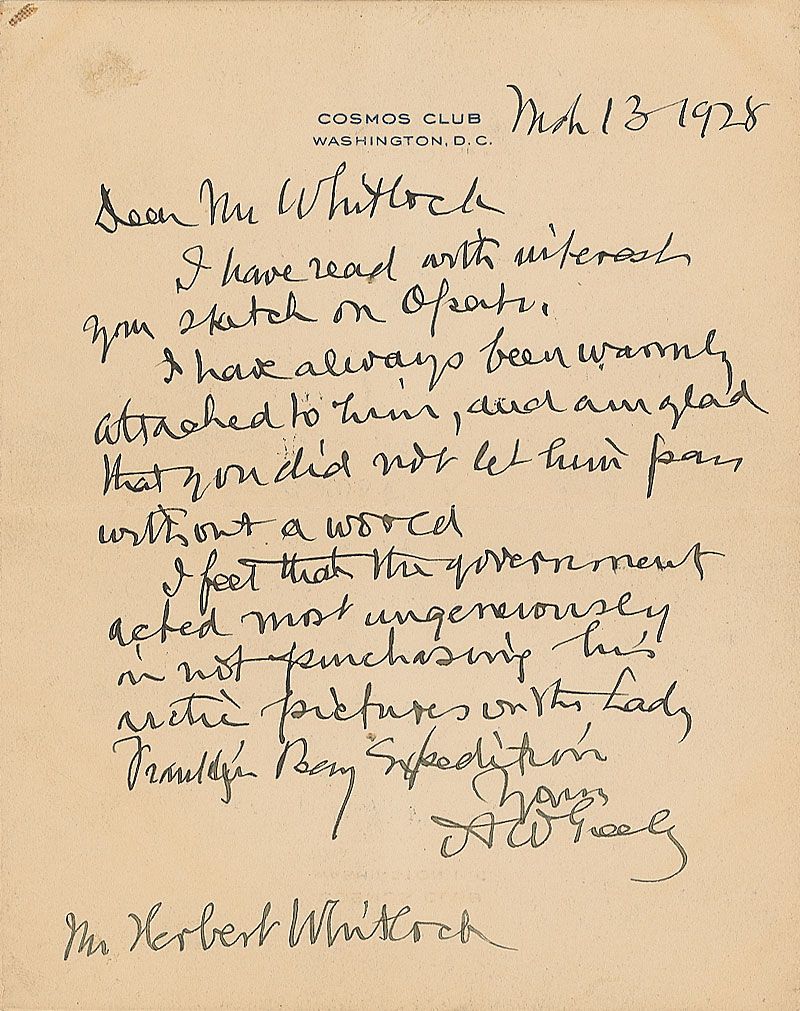 COSMOS CLUB
WASHINGTON, D.C.
Mch 13 1928
Dear Mr Whitlock
I have read with interest
your sketch on Operti.
I have always been warmly
attached to him, and am glad
that you did not let him pass
without a word
I feel that the government
acted most ungenerously
in not purchasing his
arctic pictures on the Lady
Franklin Bay Expedition
Yours
A W Greely
Mr Herbert Whitlock